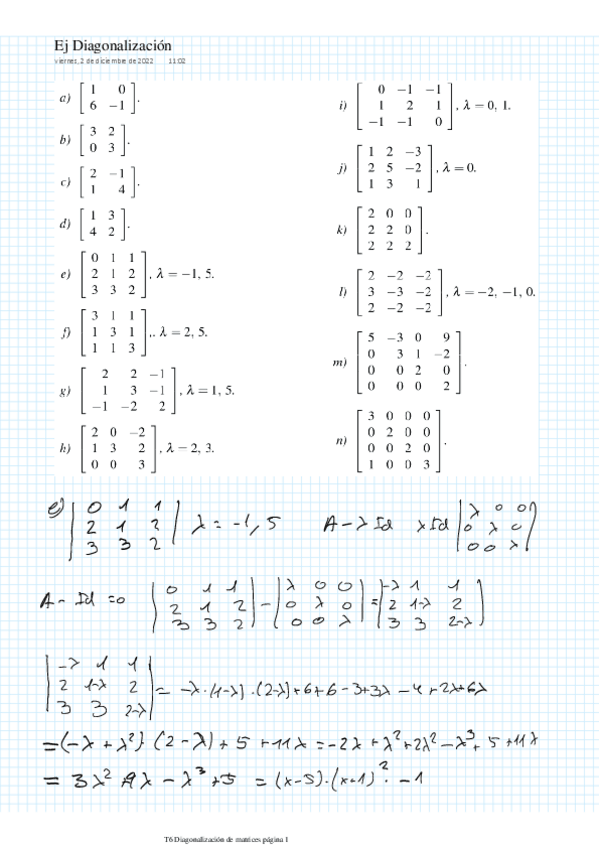 Ej Diagonalización
viernes, 2 de diciembre de 2022 11:02
a) [ 1 0
6 −1 ].
b) [ 3 2
0 3 ].
c) [ 2 −1
1 4 ].
d) [ 1 3
4 2 ].
e) [ 0 1 1
2 1 2
3 3 2 ], λ = −1, 5.
f) [ 3 1 1
1 3 1
1 1 3 ],. λ = 2, 5.
g) [ 2 2 −1
1 3 −1
−1 −2 2 ], λ = 1, 5.
h) [ 2 0 −2
1 3 2
0 0 3 ], λ = 2, 3.
i) [ 0 −1 −1
1 2 1
−1 −1 0 ], λ = 0, 1.
j) [ 1 2 −3
2 5 −2
1 3 1 ], λ = 0.
k) [ 2 0 0
2 2 0
2 2 2 ].
l) [ 2 −2 −2
3 −3 −2
2 −2 −2 ], λ = −2, −1, 0.
m) [ 5 −3 0 9
0 3 1 −2
0 0 2 0
0 0 0 2 ].
n) [ 3 0 0 0
0 2 0 0
0 0 2 0
1 0 0 3 ].
e) | 0 1 1
2 1 2
3 3 2 | λ = -1, 5 A - λ Id λ Id | λ 0 0
0 λ 0
0 0 λ |
A - Id = 0 | 0 1 1
2 1 2
3 3 2 | - | λ 0 0
0 λ 0
0 0 λ | = | -λ 1 1
2 1-λ 2
3 3 2-λ |
| -λ 1 1
2 1-λ 2
3 3 2-λ | = -λ·(1-λ)·(2-λ)+6+6-3+3λ-4+2λ+6λ
= (-λ+λ²)(2-λ)+5+11λ = -2λ+λ²+2λ²-λ³+5+11λ
= 3λ²+9λ-λ³+5 = (x-5)·(x+1)²·-1
T6 Diagonalización de matrices página 1